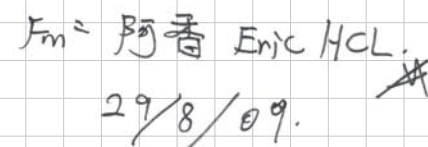 Fm= 阿香 Eric HCL.
29/8/09.